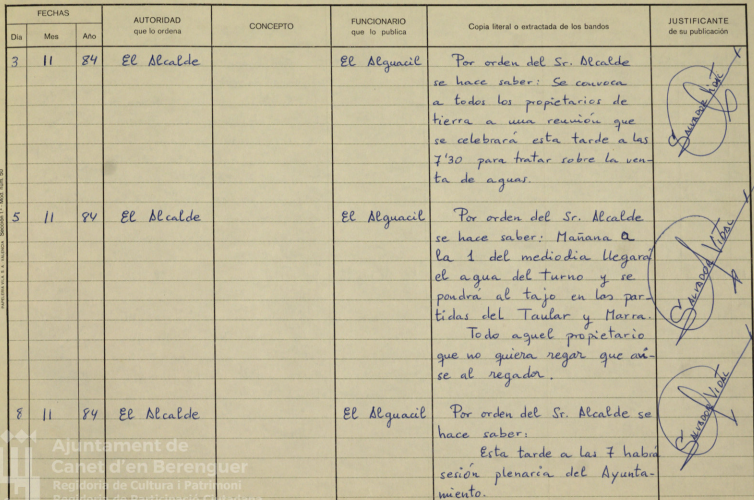 FECHAS
Día Mes Año
AUTORIDAD
que lo ordena
CONCEPTO
FUNCIONARIO
que lo publica
Copia literal o extractada de los bandos
JUSTIFICANTE
de su publicación
3 11 84 El Alcalde El Alguacil Por orden del Sr. Alcalde
se hace saber: Se convoca
a todos los propietarios de
tierra a una reunión que
se celebrará esta tarde a las
7'30 para tratar sobre la ven-
ta de aguas.
Salvador Vidal
5 11 84 El Alcalde El Alguacil Por orden del Sr. Alcalde
se hace saber: Mañana a
la 1 del mediodia llegará
el agua del turno y se
pondrá al tajo en las par-
tidas del Taular y Marra.
Todo aquel propietario
que no quiera regar que avi-
se al regador.
Salvador Vidal
8 11 84 El Alcalde El Alguacil Por orden del Sr. Alcalde se
hace saber:
Esta tarde a las 7 habrá
sesión plenaria del Ayunta-
miento.
Salvador Vidal
Ajuntament de
Canet d'en Berenguer
Regidoria de Cultura i Patrimoni
Regidoria de Participació Ciutadana